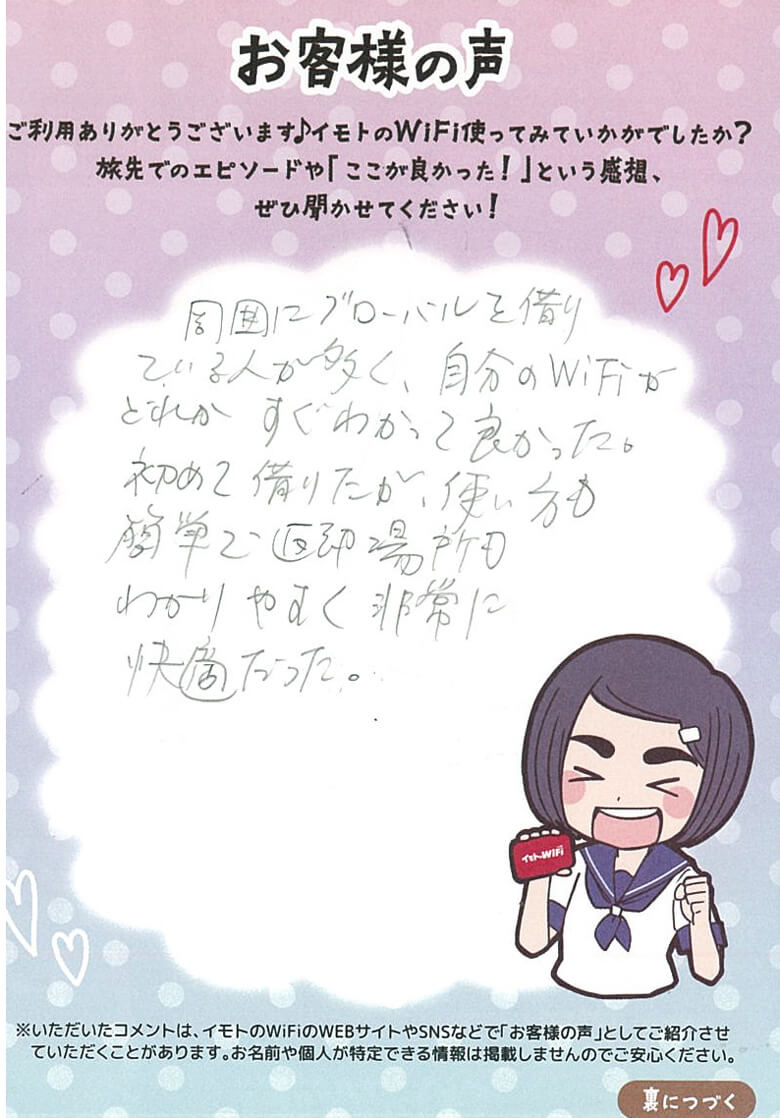 お客様の声
ご利用ありがとうございます♪イモトのWiFi使ってみていかがでしたか?
旅先でのエピソードや「ここが良かった!」という感想、
ぜひ聞かせてください!
周囲にブローバルを借り
ている人が多く、自分のWiFiが
どれか すぐわかって良かった。
初めて借りたが、使い方も
簡単で 返却場所も
わかりやすく 非常に
快適だった。
イモトのWiFi
※いただいたコメントは、イモトのWiFiのWEBサイトやSNSなどで「お客様の声」としてご紹介させ
ていただくことがあります。お名前や個人が特定できる情報は掲載しませんのでご安心ください。
裏につづく